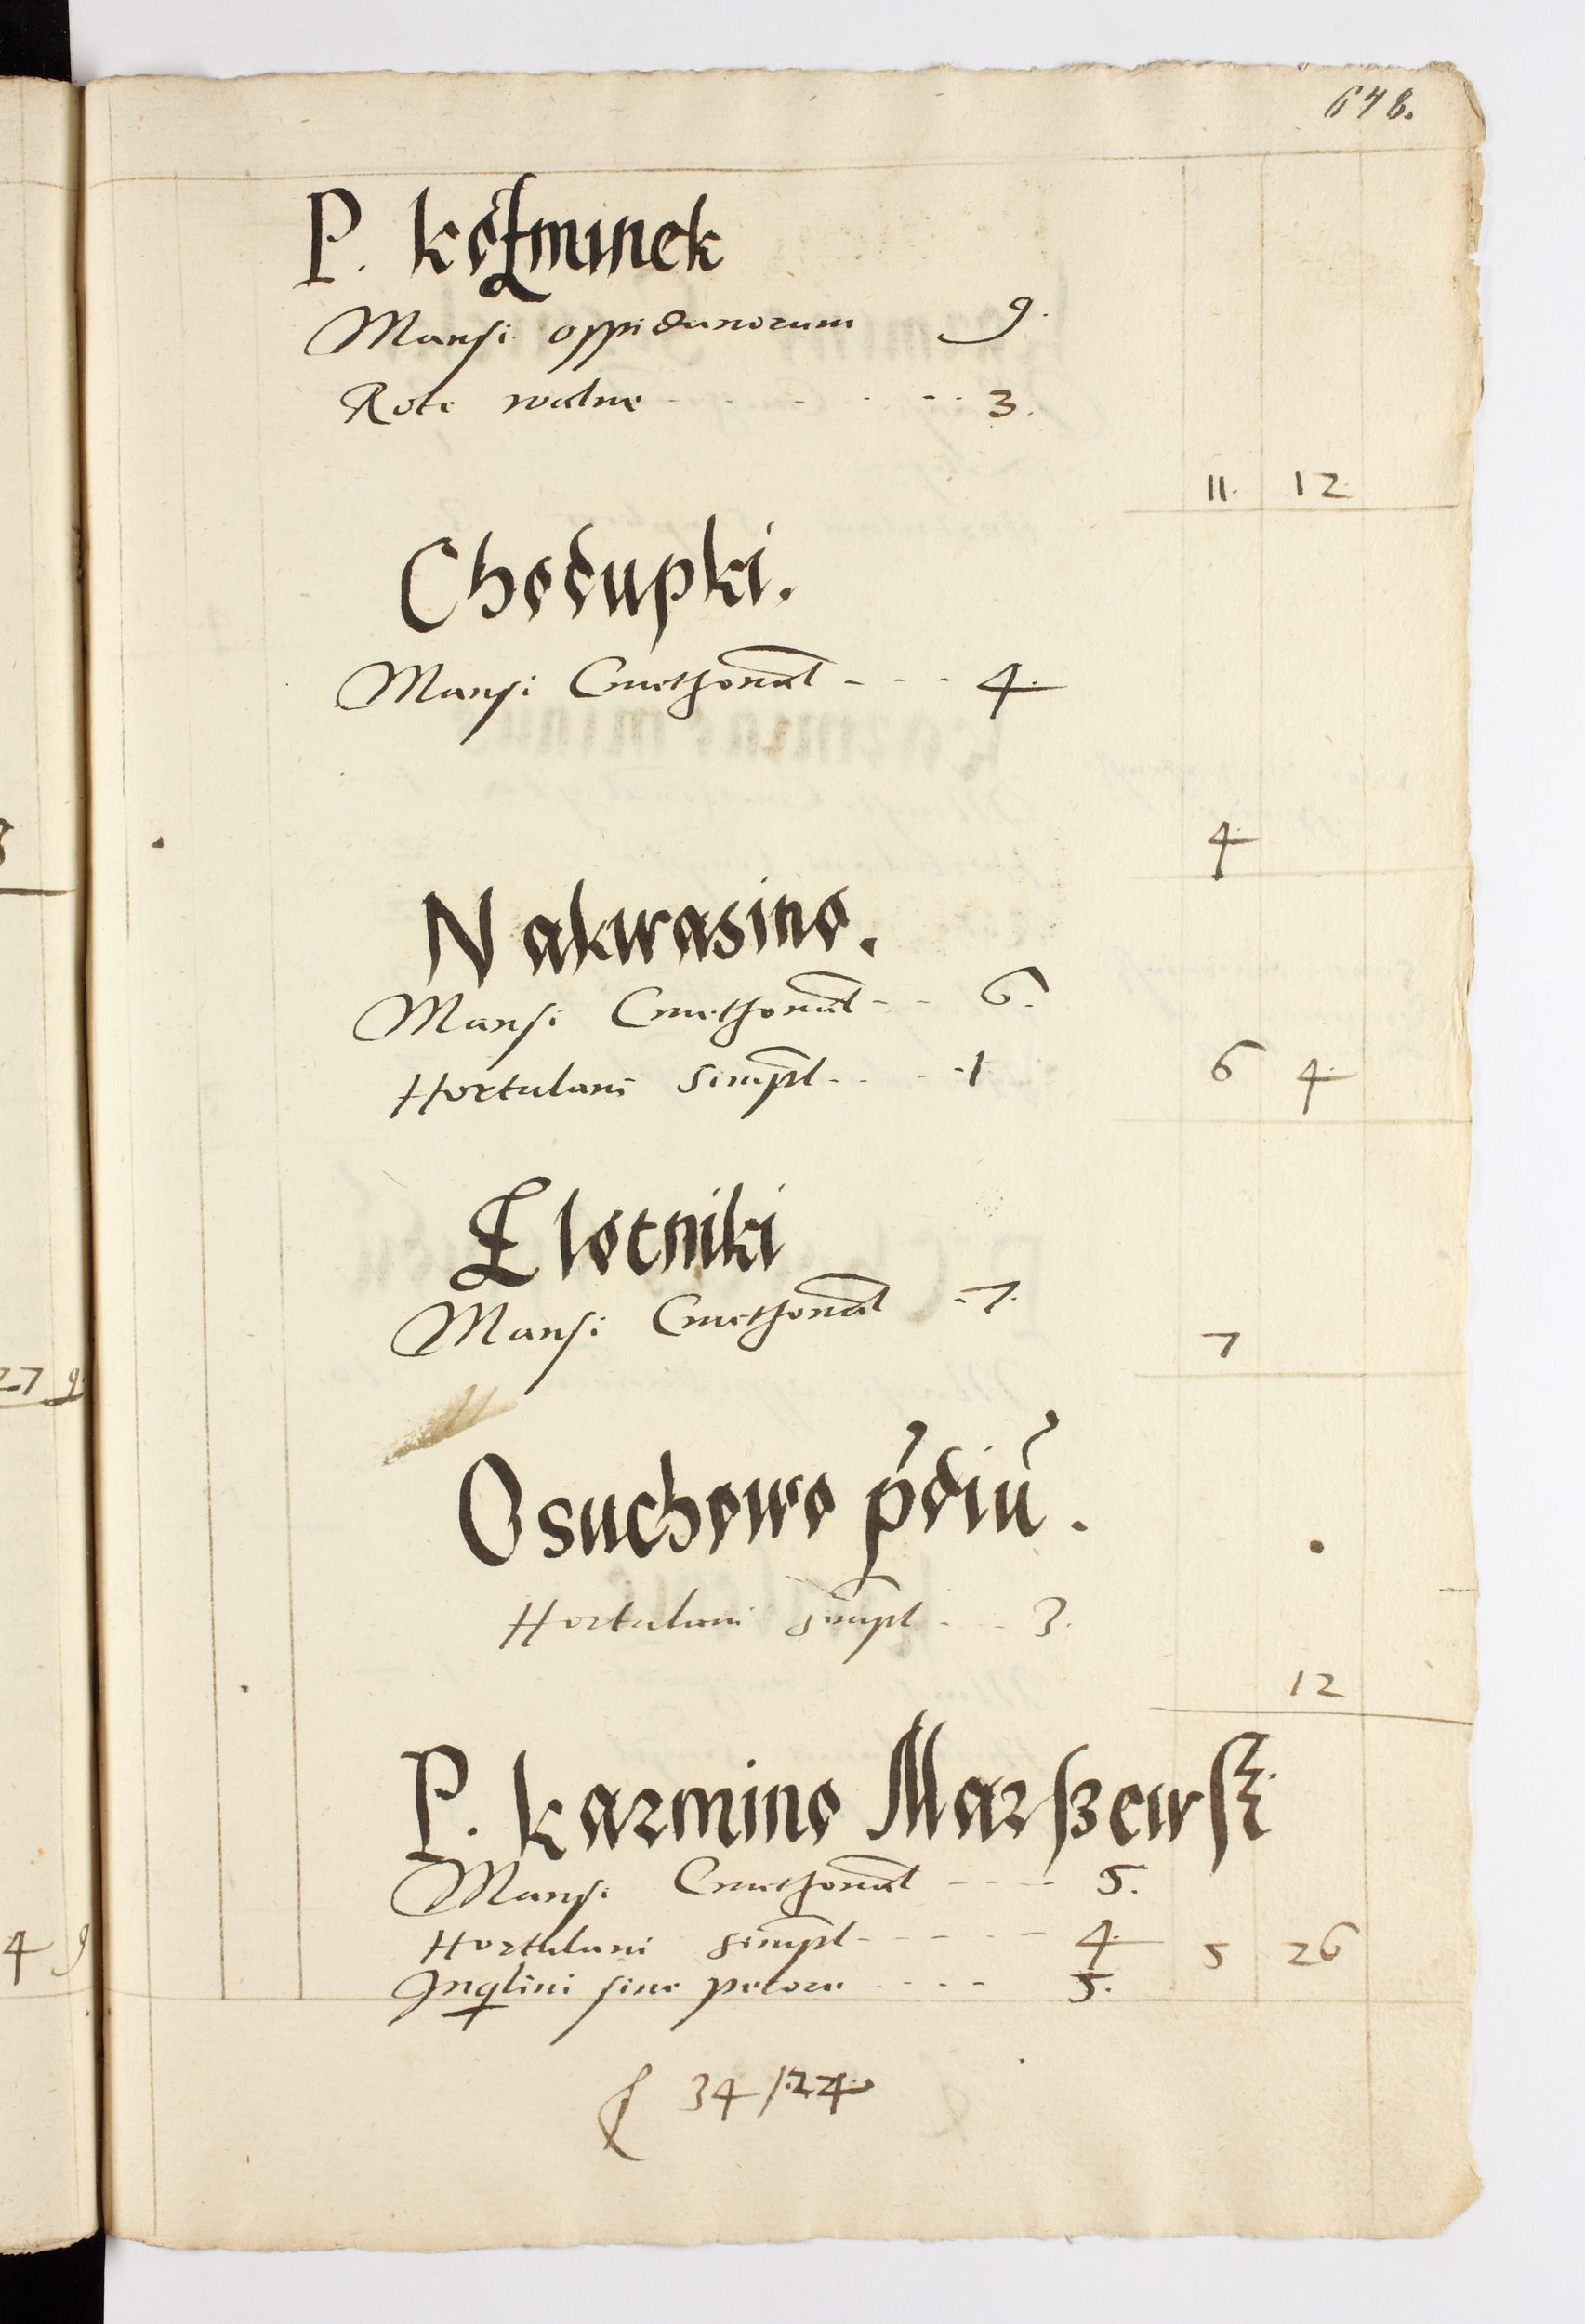 648.
P. koźminek
Mansi oppidanorum 9.
Rote walne - - - - - - 3.
11. 12
Chodupki.
Mansi Cmethonal - - - 4
4
Nakwasino.
Mansi Cmethonal - - 6.
Hortulani simpl - - - - 1 6 4
Zlotniki
Mansi Cmethonal - 7.
7
Osuchowo pdiu.
Hortulani simpl - - - 3.
12
P. karmino Marßewsk
Mansi Cmethonal - - - - 5.
Hortulani simpl - - - - - 4 5 26
Inqlini sine pecore - - - - 5.
34/24
27 9
4 9